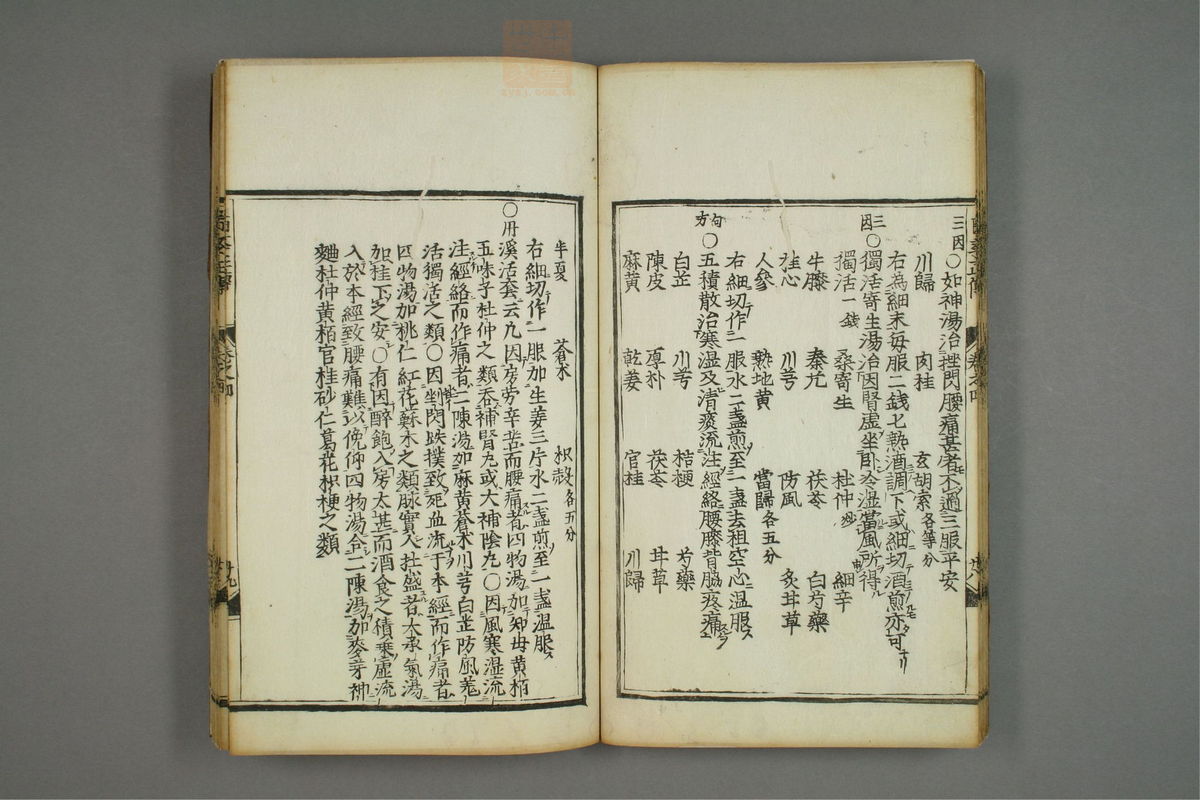 三因○如神湯治挫閃腰痛甚者不過三服平安
川歸 肉桂 玄胡索各等分
右為細末毎服二錢七熱酒調下或細切酒煎亦可
三因○獨活寄生湯治因腎虛坐卧冷湿當風所得
獨活一錢 桑寄生 杜仲炒 細辛
牛膝 秦艽 茯苓 白芍藥
桂心 川芎 防風 炙甘草
人參 熟地黄 當歸各五分
右細切作一服水二盞煎至一盞去粗空心温服
局方○五積散治寒湿及清痰流注經絡腰膝背脇疼痛
白芷 川芎 桔梗 芍藥
陳皮 厚朴 茯苓 甘草
麻黄 乾姜 官桂 川歸
半夏 蒼朮 枳殻各五分
右細切作一服加生姜三片水二盞煎至一盞温服
○丹溪活套云凡因房劳辛苦而腰痛者四物湯加知母黄栢
五味子杜仲之類吞補腎丸或大補陰丸○因風寒湿流
注經絡而作痛者二陳湯加麻黄蒼朮川芎白芷防風羗
活獨活之類○因挫閃跌撲致死血流于本經而作痛者
四物湯加桃仁紅花蘇木之類脉實人壮盛者大承氣湯
加桂下之安○有因醉飽入房太甚而酒食之積乗虛流
入於本經致腰痛難以俛仰四物湯合二陳湯加麥芽神
麯杜仲黄栢官桂砂仁葛花枳梗之類
卷之四
廿九
卷之四
廿八